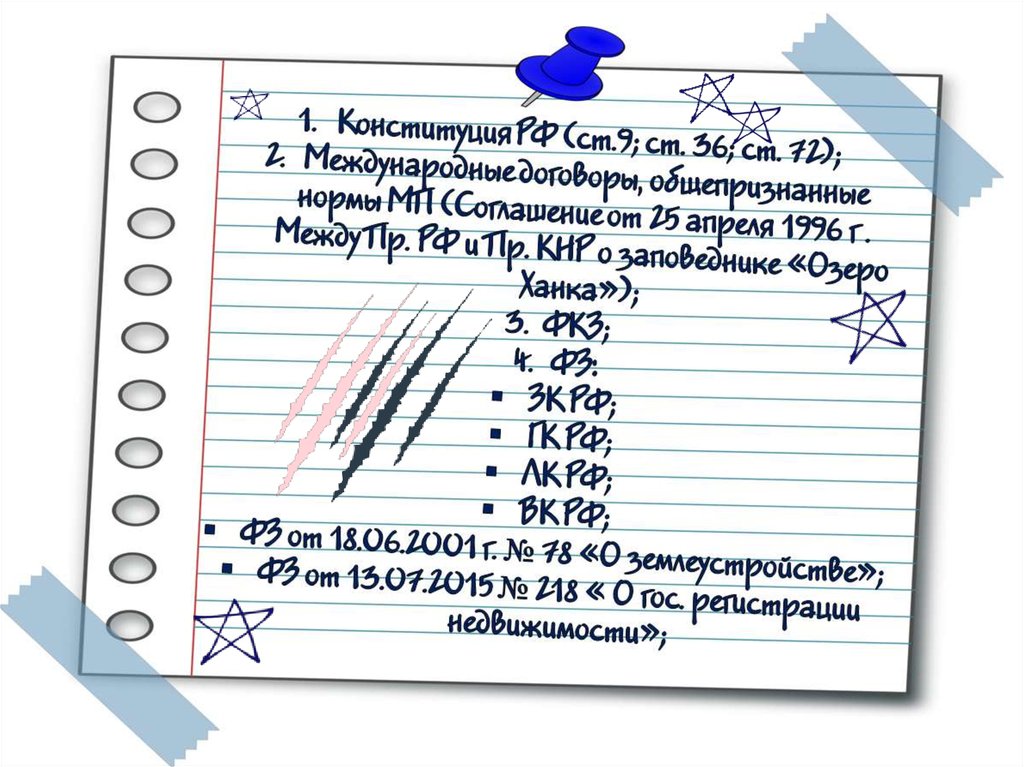 1. Конституция РФ (ст.9; ст. 36; ст. 72);
2. Международные договоры, общепризнанные
нормы МП (Соглашение от 25 апреля 1996 г.
Между Пр. РФ и Пр. КНР о заповеднике «Озеро
Ханка»);
3. ФКЗ;
4. ФЗ:
▪ ЗК РФ;
▪ ГК РФ;
▪ ЛК РФ;
▪ ВК РФ;
▪ ФЗ от 18.06.2001 г. № 78 «О землеустройстве»;
▪ ФЗ от 13.07.2015 № 218 « О гос. регистрации
недвижимости»;